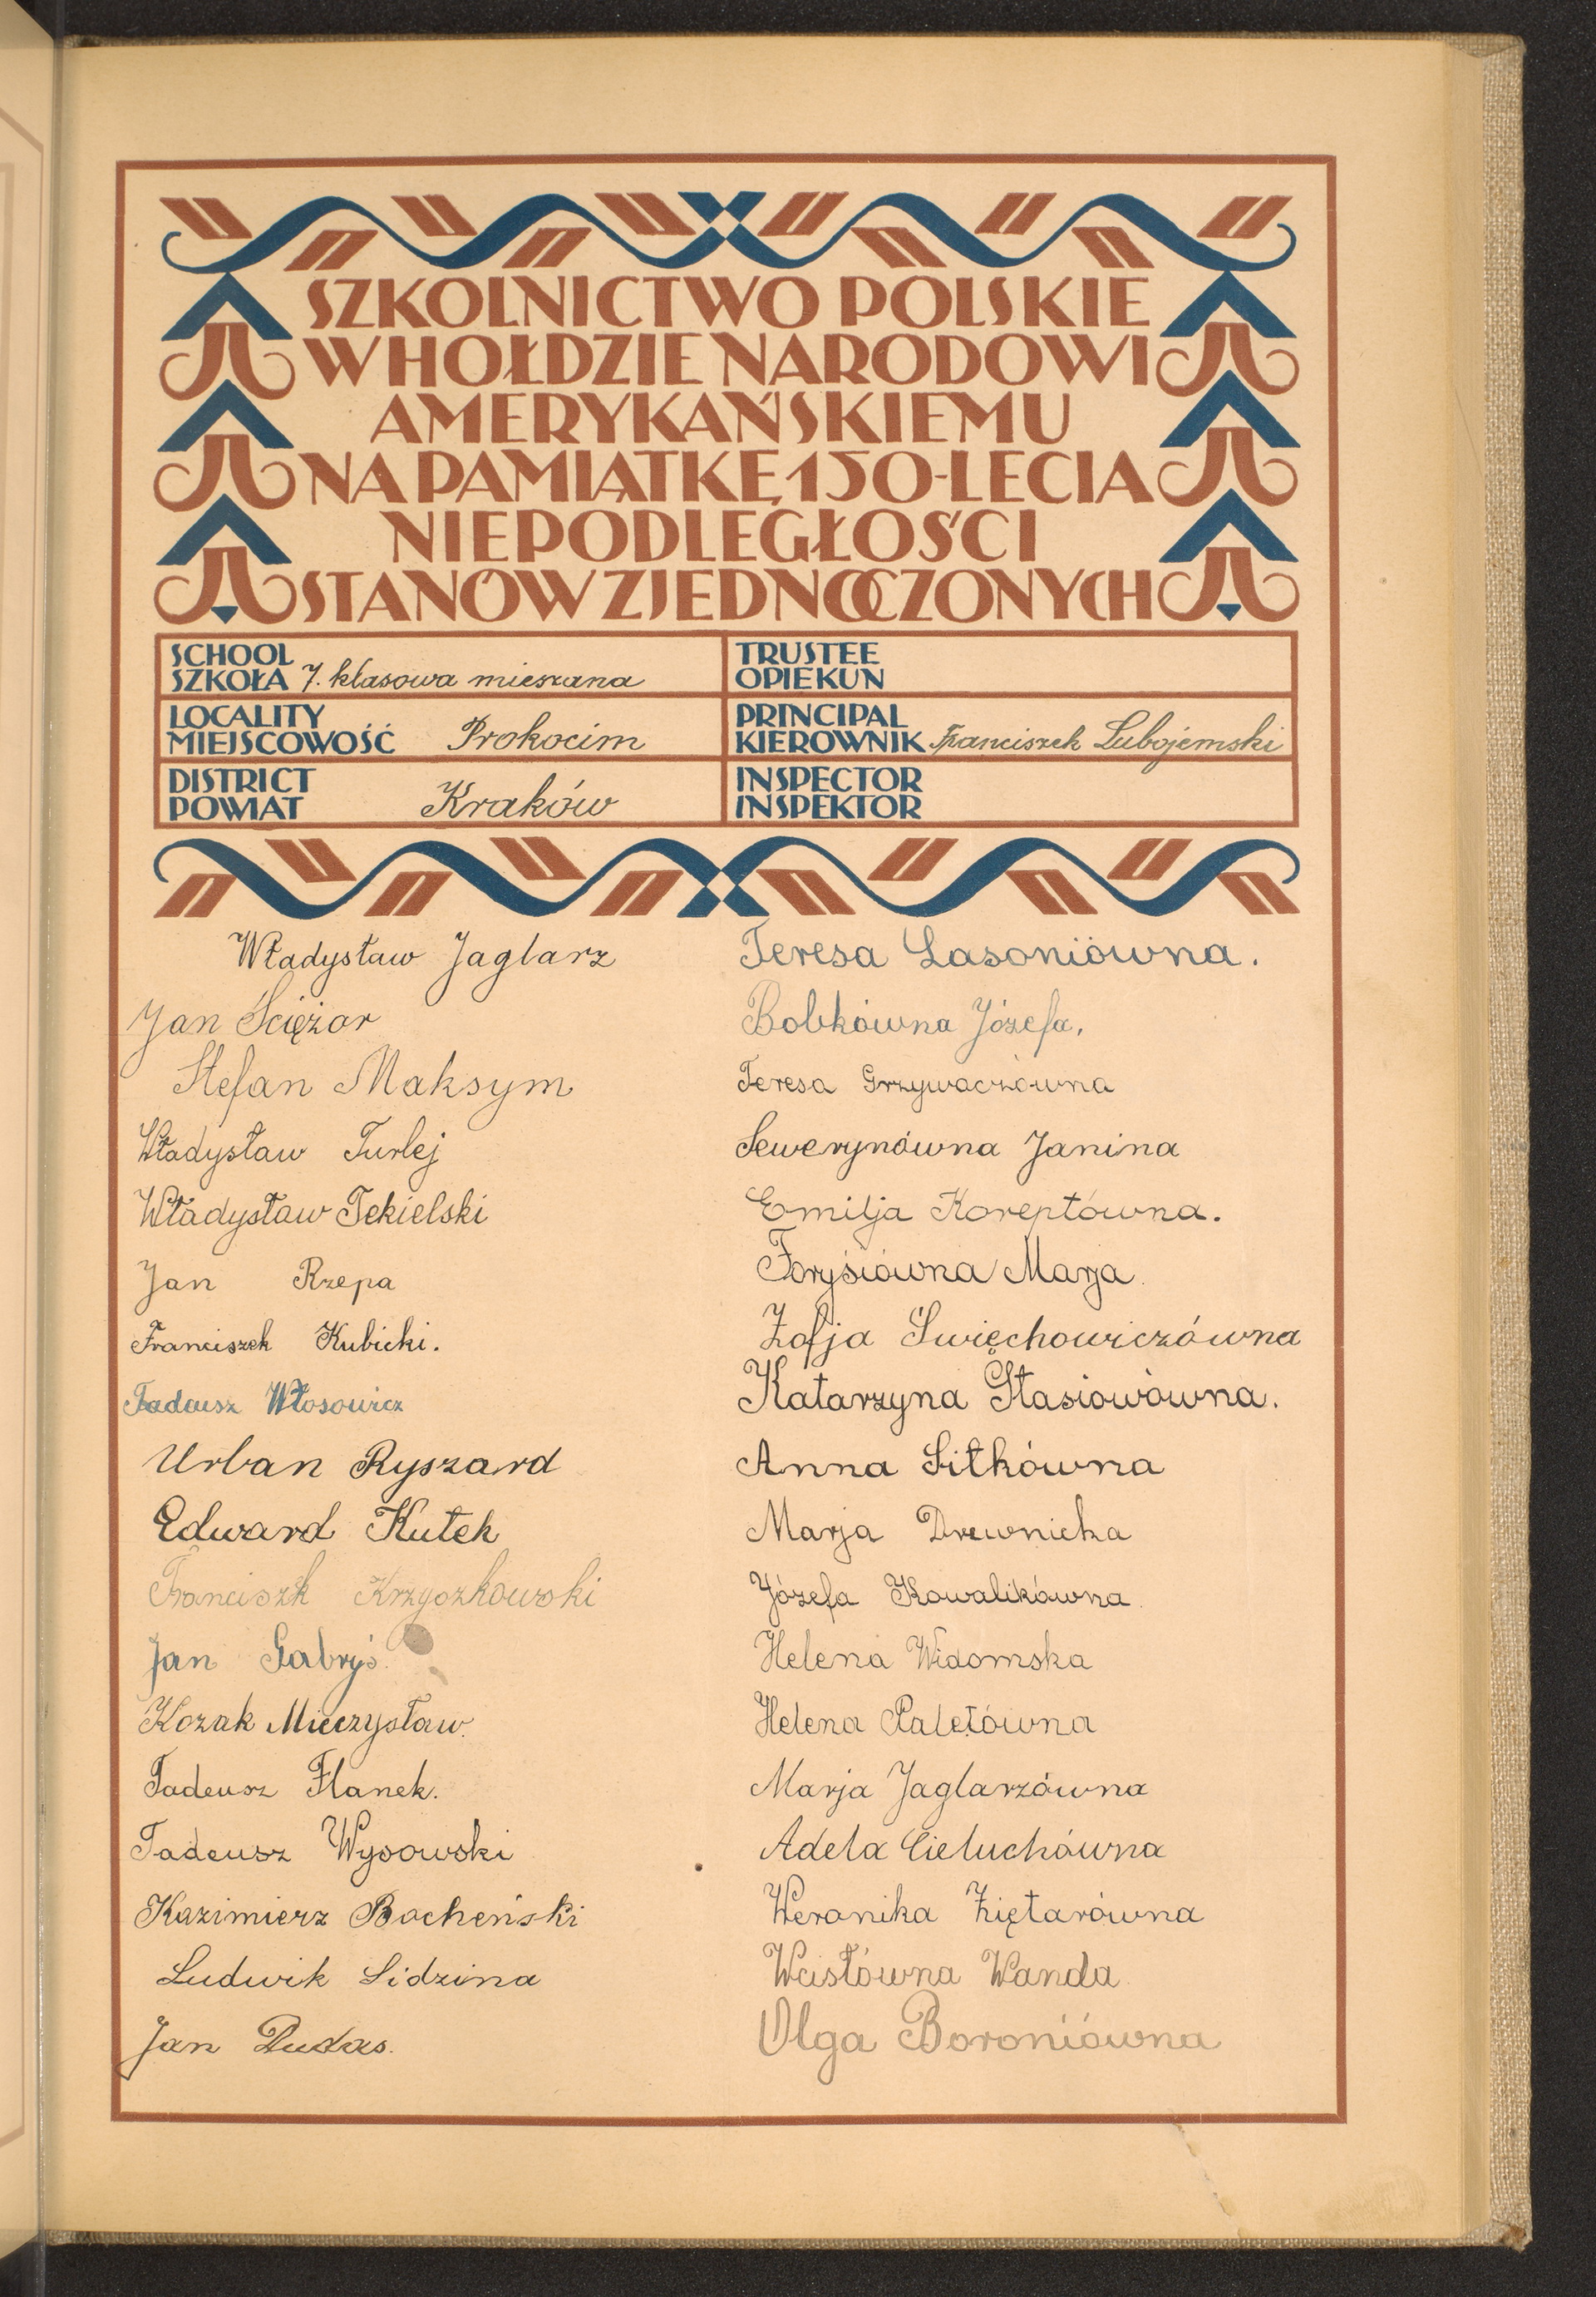 SZKOLNICTWO POLSKIE
W HOŁDZIE NARODOWI
AMERYKAŃSKIEMU
NA PAMIĄTKĘ 150-LECIA
NIEPODLEGŁOŚCI
STANÓW ZJEDNOCZONYCH
SCHOOL
SZKOŁA 7. klasowa mieszana
TRUSTEE
OPIEKUN
LOCALITY
MIEJSCOWOŚĆ Prokocim
PRINCIPAL
KIEROWNIK Franciszek Lubojemski
DISTRICT
POWIAT Kraków
INSPECTOR
INSPEKTOR
Władysław Jaglarz
Jan Ściężor
Stefan Maksym
Władysław Turlej
Władysław Tekielski
Jan Rzepa
Franciszek Kubicki.
Tadeusz Włosowicz
Urban Ryszard
Edward Kutek
Franciszk Krzyszkowski
Jan Gabryś.
Kozak Mieczysław.
Tadeusz Flanek.
Tadeusz Wysowski
Kazimierz Bocheński
Ludwik Sidzina
Jan Dudas.
Teresa Lasoniówna.
Bobkówna Józefa.
Teresa Grzywaczówna
Sewerynówna Janina
Emilja Koreptówna.
Foryśiówna Marja.
Zofja Święchowiczówna
Katarzyna Stasiowówna.
Anna Sitkówna
Marja Drewnicka
Józefa Kowalikówna.
Helena Widomska
Helena Paletówna
Marja Jaglarzówna
Adela Cieluchówna
Weronika Ziętarówna
Wcisłówna Wanda.
Olga Boroniówna